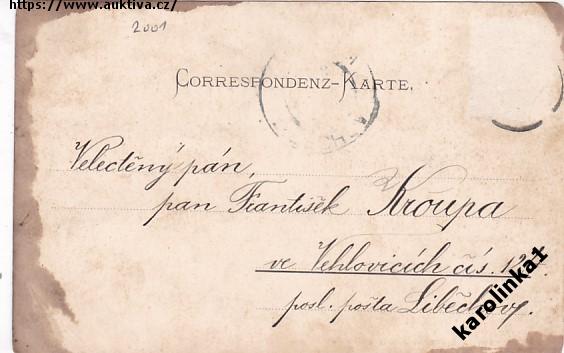 https://www.auktiva.cz/
2001
CORRESPONDENZ-KARTE.
Velectěný pán,
pan František Kroupa
ve Vehlovicích čís. 12
posl. pošta Liběchov.
karolinka1